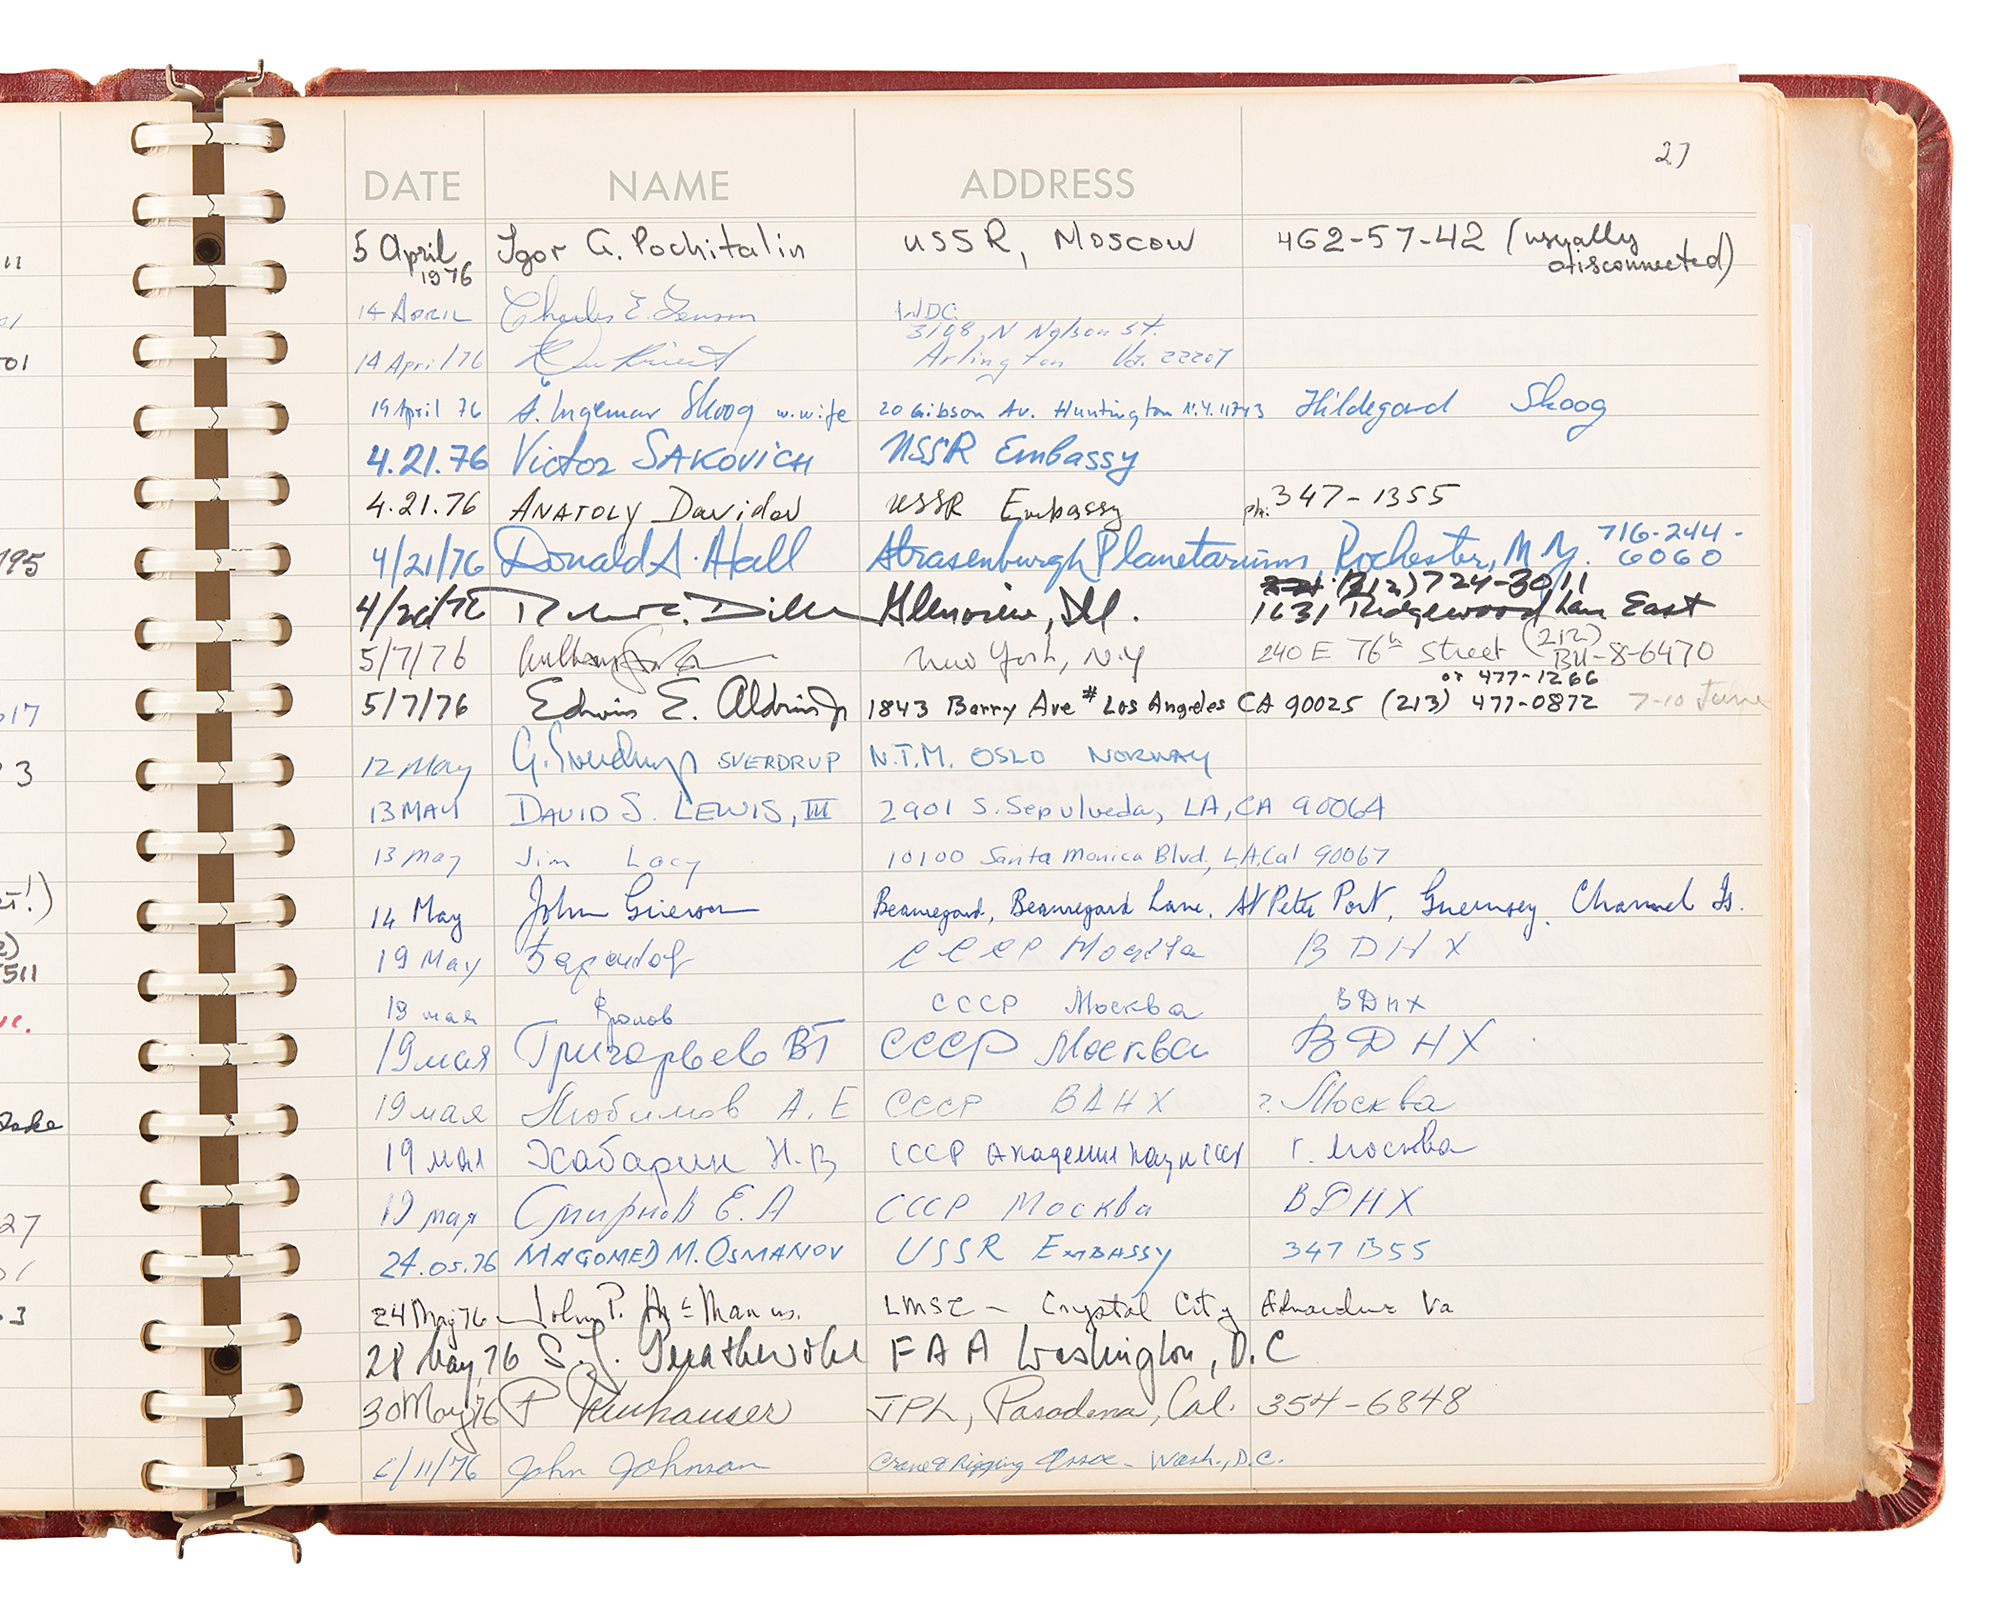 27
DATE NAME ADDRESS
5 April 1976 Igor G. Pochitalin USSR, Moscow 462-57-42 (usually disconnected)
14 APRIL Charles E. WDC
3108 N Nelson St.
14 April/76 Arlington Va. 22207
19 April 76 A. Ingemar Skoog w. wife 20 Gibson Av. Huntington N.Y. 11743 Hildegard Skoog
4.21.76 Victor SAKOVICH USSR Embassy
4.21.76 ANATOLY Davidov USSR Embassy ph. 347-1355
4/21/76 Donald S. Hall Strasenburgh Planetarium, Rochester, N.Y. 716-244-6060
(312) 724-3011
Glenview, Ill. 1631 Ridgewood Lane East
5/7/76 New York, N.Y 240 E 76th Street (212) BU-8-6470
or 477-1266
5/7/76 Edwin E. Aldrin Jr 1843 Barry Ave # Los Angeles CA 90025 (213) 477-0872 7-10 June
12 May G. Sverdrup SVERDRUP N.T.M. OSLO NORWAY
13 MAY DAVID S. LEWIS, III 2901 S. Sepulveda, LA, CA 90064
13 May Jim Lacy 10100 Santa Monica Blvd, L.A. Cal 90067
14 May John Grierson Beauregard, Beauregard Lane, St Peter Port, Guernsey. Channel Is.
19 May СССР Москва ВДНХ
19 мая СССР Москва ВДНХ
19 мая Григорьев ВТ СССР Москва ВДНХ
19 мая Любимов А. Е СССР ВДНХ г. Москва
19 мая Хабарин Н. В СССР Академия наук СССР г. Москва
19 мая Смирнов Е. А СССР Москва ВДНХ
24.05.76 MAGOMED M. OSMANOV USSR EMBASSY 347 1355
24 May 76 John P. McManus. LMSC - Crystal City Va
28 May, 76 S. FAA Washington, D.C
30 May 76 P Neuhauser JPL, Pasadena, Cal. 354-6848
6/11/76 John Johnson Crane & Rigging Assoc - Wash., D.C.